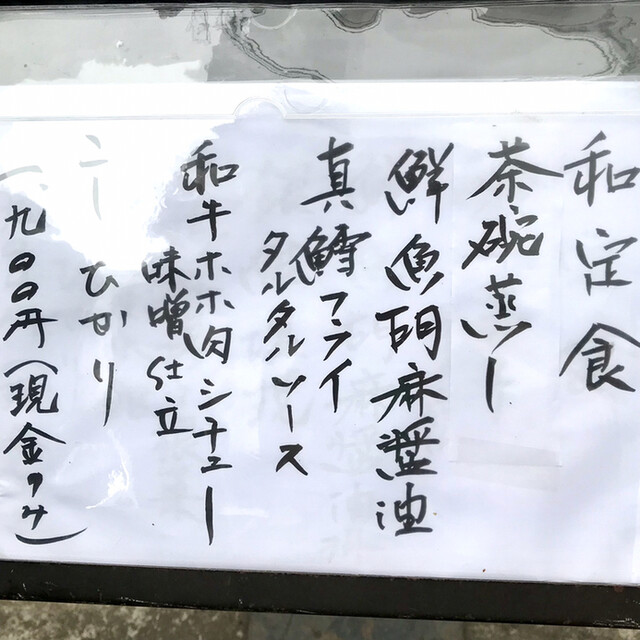 和定食
茶碗蒸し
鮮魚胡麻醤油
真鱈フライ
タルタルソース
和牛ホホ肉シチュー
味噌仕立
ひかり
一、九〇〇円(現金のみ)